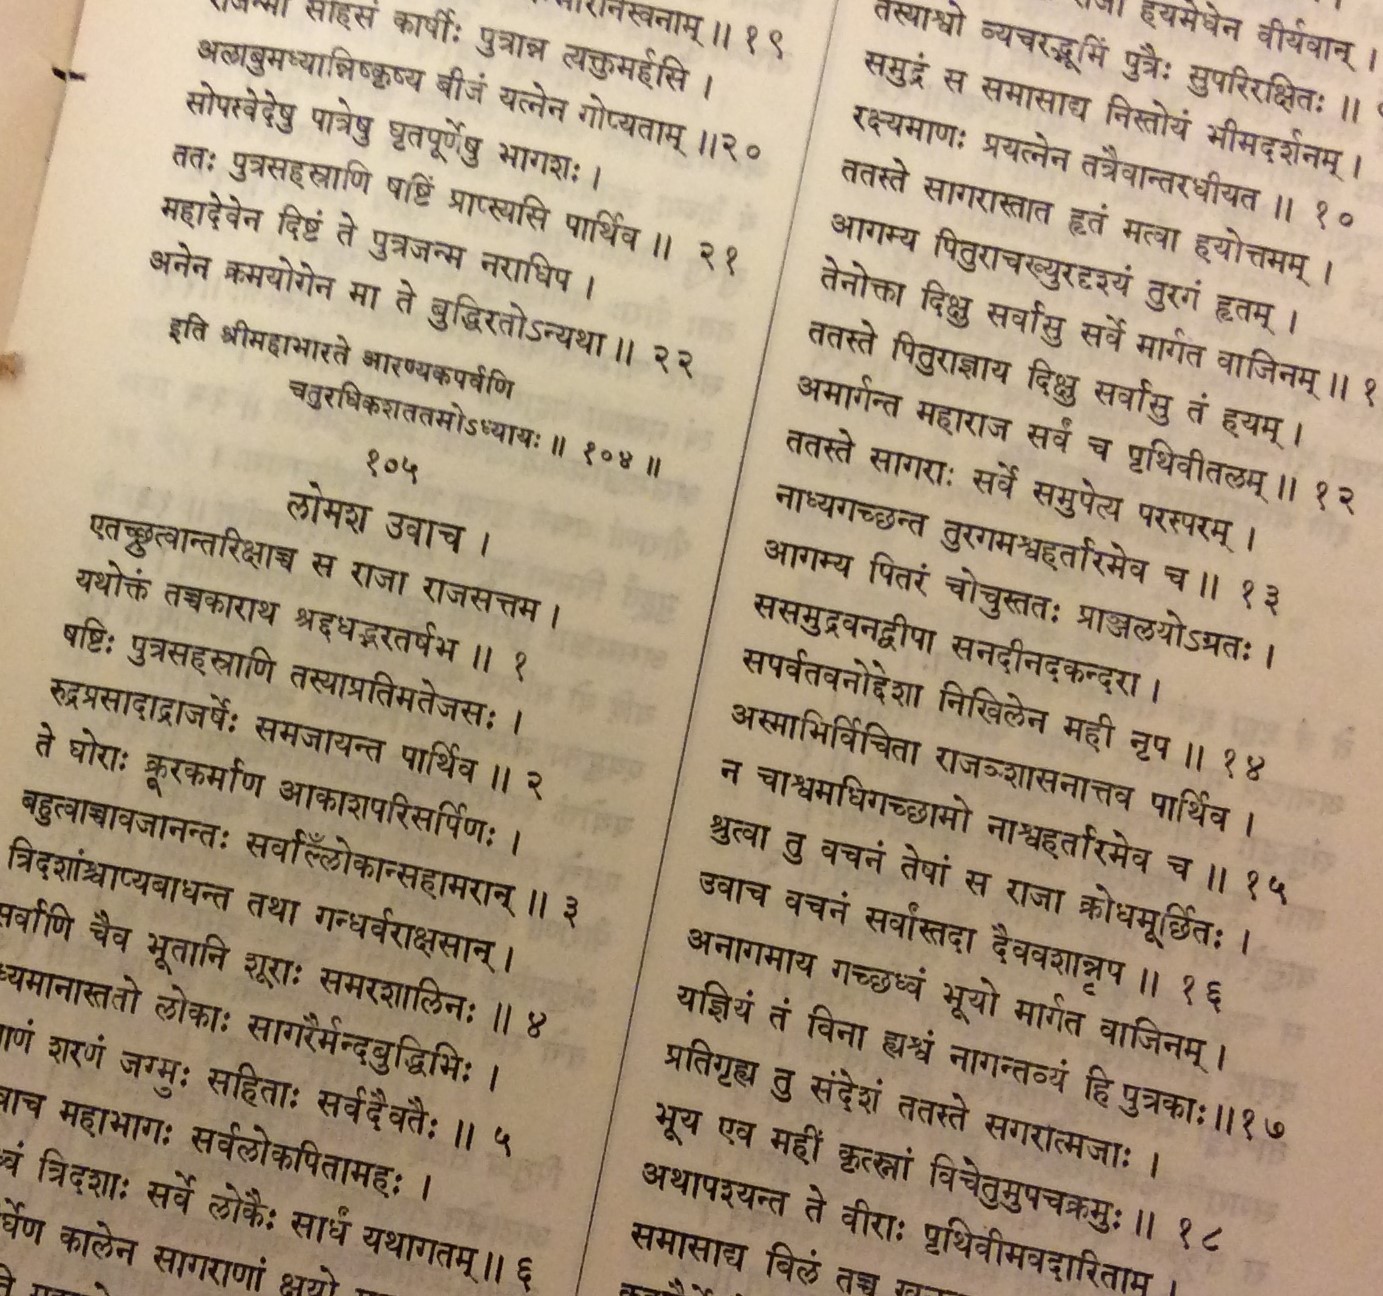 साहसं कार्षीः पुत्रान्न त्यक्तुमर्हसि ।
अलाबुमध्यान्निष्कृष्य बीजं यत्नेन गोप्यताम् ॥२०
सोपस्वेदेषु पात्रेषु घृतपूर्णेषु भागशः ।
ततः पुत्रसहस्राणि षष्टिं प्राप्स्यसि पार्थिव ॥ २१
महादेवेन दिष्टं ते पुत्रजन्म नराधिप ।
अनेन क्रमयोगेन मा ते बुद्धिरतोऽन्यथा ॥ २२
इति श्रीमहाभारते आरण्यकपर्वणि
चतुरधिकशततमोऽध्यायः ॥ १०४ ॥
१०५
लोमश उवाच ।
एतच्छ्रुत्वान्तरिक्षाच्च स राजा राजसत्तम ।
यथोक्तं तच्चकाराथ श्रद्दधद्भरतर्षभ ॥ १
षष्टिः पुत्रसहस्राणि तस्याप्रतिमतेजसः ।
रुद्रप्रसादाद्राजर्षेः समजायन्त पार्थिव ॥ २
ते घोराः क्रूरकर्माण आकाशपरिसर्पिणः ।
बहुत्वाच्चावजानन्तः सर्वाल्ँलोकान्सहामरान् ॥ ३
त्रिदशांश्चाप्यबाधन्त तथा गन्धर्वराक्षसान् ।
सर्वाणि चैव भूतानि शूराः समरशालिनः ॥ ४
लोकाः सागरैर्मन्दबुद्धिभिः ।
शरणं जग्मुः सहिताः सर्वदैवतैः ॥ ५
महाभागः सर्वलोकपितामहः ।
त्रिदशाः सर्वे लोकैः सार्धं यथागतम् ॥ ६
कालेन सागराणां क्षयो
हयमेधेन वीर्यवान् ।
तस्याश्वो व्यचरद्भूमिं पुत्रैः सुपरिरक्षितः ॥
समुद्रं स समासाद्य निस्तोयं भीमदर्शनम् ।
रक्ष्यमाणः प्रयत्नेन तत्रैवान्तरधीयत ॥ १०
ततस्ते सागरास्तात हृतं मत्वा हयोत्तमम् ।
आगम्य पितुराचख्युरदृश्यं तुरगं हृतम् ।
तेनोक्ता दिक्षु सर्वासु सर्वे मार्गत वाजिनम् ॥ १
ततस्ते पितुराज्ञाय दिक्षु सर्वासु तं हयम् ।
अमार्गन्त महाराज सर्वं च पृथिवीतलम् ॥ १२
ततस्ते सागराः सर्वे समुपेत्य परस्परम् ।
नाध्यगच्छन्त तुरगमश्वहर्तारमेव च ॥ १३
आगम्य पितरं चोचुस्ततः प्राञ्जलयोऽग्रतः ।
ससमुद्रवनद्वीपा सनदीनदकन्दरा ।
सपर्वतवनोद्देशा निखिलेन मही नृप ॥ १४
अस्माभिर्विचिता राजञ्शासनात्तव पार्थिव ।
न चाश्वमधिगच्छामो नाश्वहर्तारमेव च ॥ १५
श्रुत्वा तु वचनं तेषां स राजा क्रोधमूर्छितः ।
उवाच वचनं सर्वांस्तदा दैववशान्नृप ॥ १६
अनागमाय गच्छध्वं भूयो मार्गत वाजिनम् ।
यज्ञियं तं विना ह्यश्वं नागन्तव्यं हि पुत्रकाः ॥१७
प्रतिगृह्य तु संदेशं ततस्ते सगरात्मजाः ।
भूय एव महीं कृत्स्नां विचेतुमुपचक्रमुः ॥ १८
अथापश्यन्त ते वीराः पृथिवीमवदारिताम् ।
समासाद्य बिलं तच्च